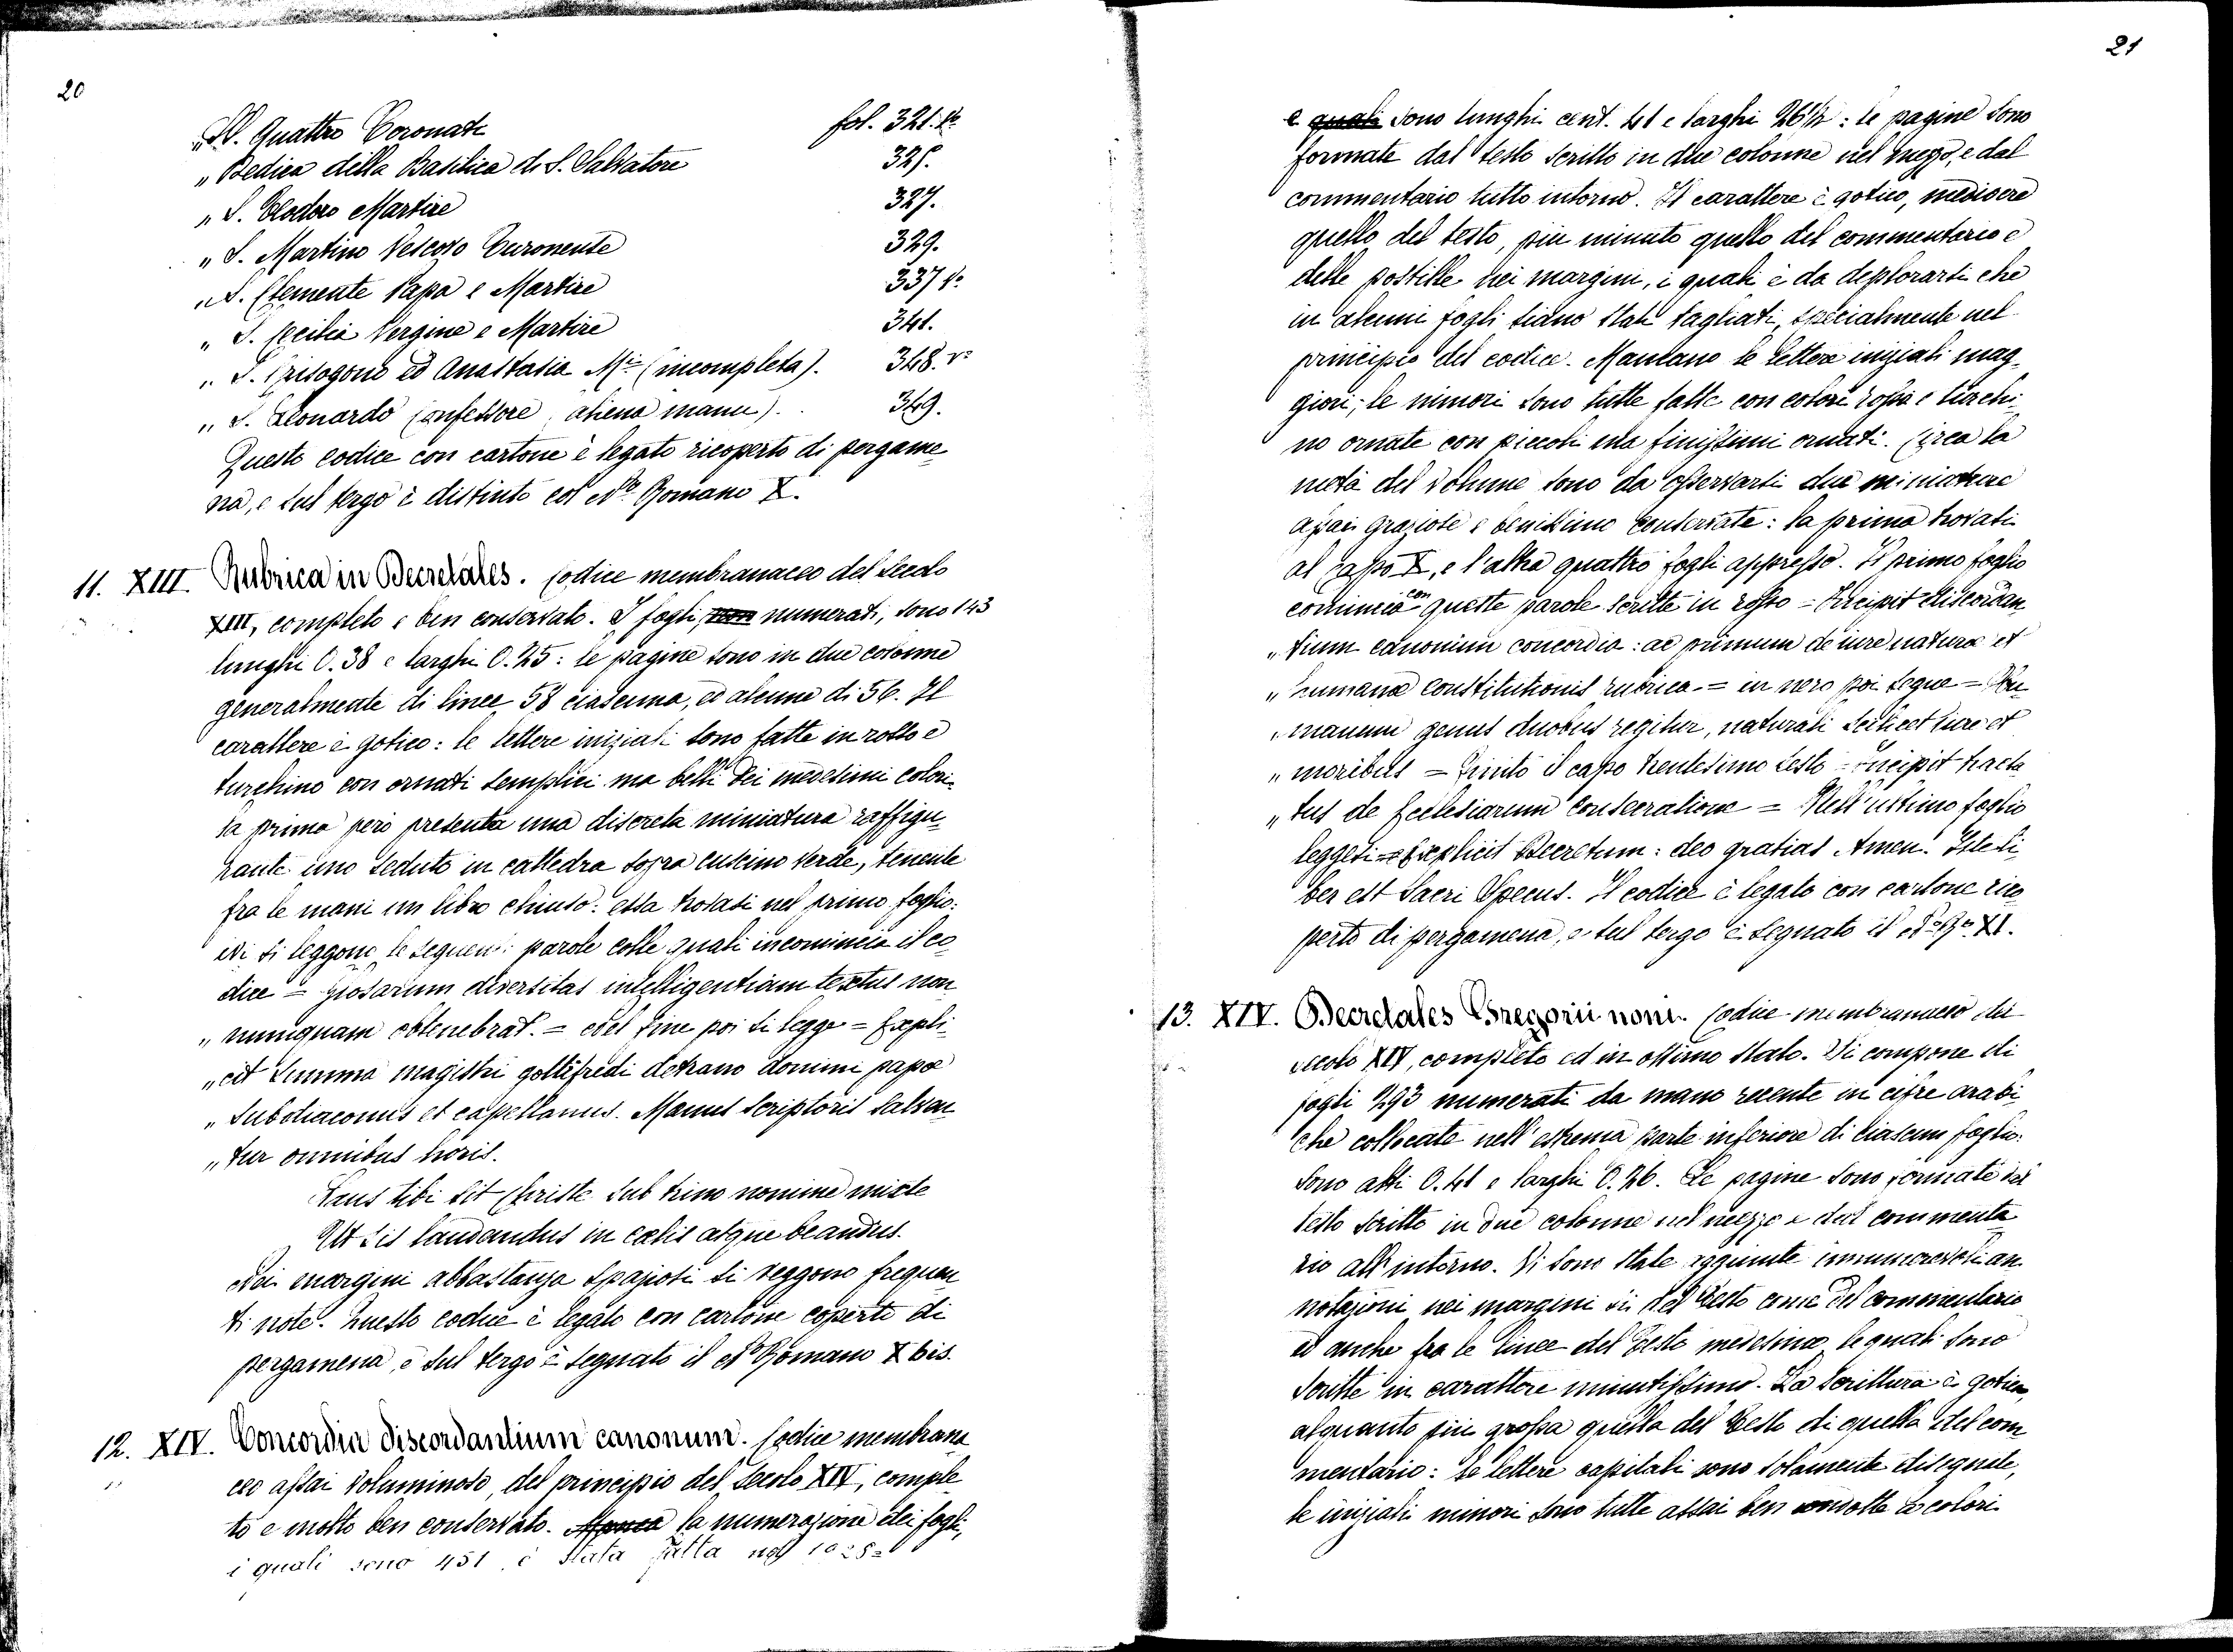 20
„ SS. Quattro Coronati fol. 321. vo
„ Dedica della Basilica di S. Salvatore 325.
„ S. Teodoro Martire 327.
„ S. Martino Vescovo Turonense 329.
„ S. Clemente Papa e Martire 337 vo
„ S. Cecilia Vergine e Martire 341.
„ S. Grisogono ed Anastasia Mri (incompleta). 348. vo
„ S. Leonardo Confessore (aliena manu). 349.
Questo codice con cartone è legato ricoperto di pergame
na, e sul tergo è distinto col No Romano X.
11. XIII. Rubrica in Decretales. Codice membranaceo del secolo
XIII, completo e ben conservato. I fogli, non numerati, sono 143
lunghi 0.38 e larghi 0.25: le pagine sono in due colonne
generalmente di linee 58 ciascuna, ed alcune di 56. Il
carattere è gotico: le lettere iniziali sono fatte in rosso e
turchino con ornati semplici ma belli dei medesimi colori;
la prima però presenta una discreta miniatura raffigu
rante uno seduto in cattedra sopra cuscino verde, tenente
fra le mani un libro chiuso: essa trovasi nel primo foglio:
ivi si leggono le seguenti parole colle quali incomincia il co
dice = Glosarum diversitas intelligentiam textus non
„ nunquam obtenebrat. = ed al fine poi si legge = Expli
„ cit Summa magistri gottifredi detrano domini papæ
„ Subdiaconus et capellanus. Manus scriptoris salvan
„ tur omnibus horis.
Laus tibi sit Christe sub trino nomine mixte
Ut sis laudandus in cœlis atque beandus.
Nei margini abbastanza spaziosi si veggono frequen
ti note. Questo codice è legato con cartone coperto di
pergamena, e sul tergo è segnato il No Romano X bis.
12. XIV. Concordia discordantium canonum. Codice membrana
ceo assai voluminoso, del principio del secolo XIV, comple
to e molto ben conservato. Manca la numerazione dei fogli,
i quali sono 451 è stata fatta nel
21
e quali sono lunghi cent. 41 e larghi 26½: le pagine sono
formate dal testo scritto in due colonne nel mezzo, e dal
commentario tutto intorno. Il carattere è gotico, mediocre
quello del testo, più minuto quello del commentario e
delle postille nei margini, i quali è da deplorarsi che
in alcuni fogli siano stati tagliati, specialmente nel
principio del codice. Mancano le lettere iniziali mag
giori; le minori sono tutte fatte con colori rosso e turchi
no ornate con piccoli ma finissimi ornati. Circa la
metà del volume sono da osservarsi due miniature
assai graziose e benissimo conservate: la prima trovasi
al capo X, e l'altra quattro fogli appresso. Il primo foglio
comincia con queste parole scritte in rosso = Incipit discordan
„ tium canonum concordia: ac primum de iure naturæ et
„ humanæ constitutionis rubrica. = in nero poi segue = Hu
„ manum genus duobus regitur, naturali scilicet iure et
„ moribus = Finito il capo trentesimo sesto = Incipit tracta
„ tus de Ecclesiarum consecratione = Nell'ultimo foglio
leggesi = Explicit Decretum: deo gratias Amen. Iste li
ber est Sacri Specus. Il codice è legato con cartone rico
perto di pergamena, e sul tergo è segnato il No Ro XI.
13. XIV. Decretales Gregorii noni. Codice membranaceo del
secolo XIV, completo ed in ottimo stato. Si compone di
fogli 293 numerati da mano recente in cifre arabi
che collocate nell'estrema parte inferiore di ciascun foglio:
sono alti 0.41 e larghi 0.26. Le pagine sono formate dal
testo scritto in due colonne nel mezzo e dal commenta
rio all'intorno. Vi sono state aggiunte innumerevoli an
notazioni nei margini sì del testo come del commentario
ed anche fra le linee del testo medesimo, le quali sono
scritte in carattere minutissimo. La scrittura è gotica,
alquanto più grossa quella del testo di quella del com
mentario: le lettere capitali sono solamente disegnate,
le iniziali minori sono tutte assai ben condotte a colori